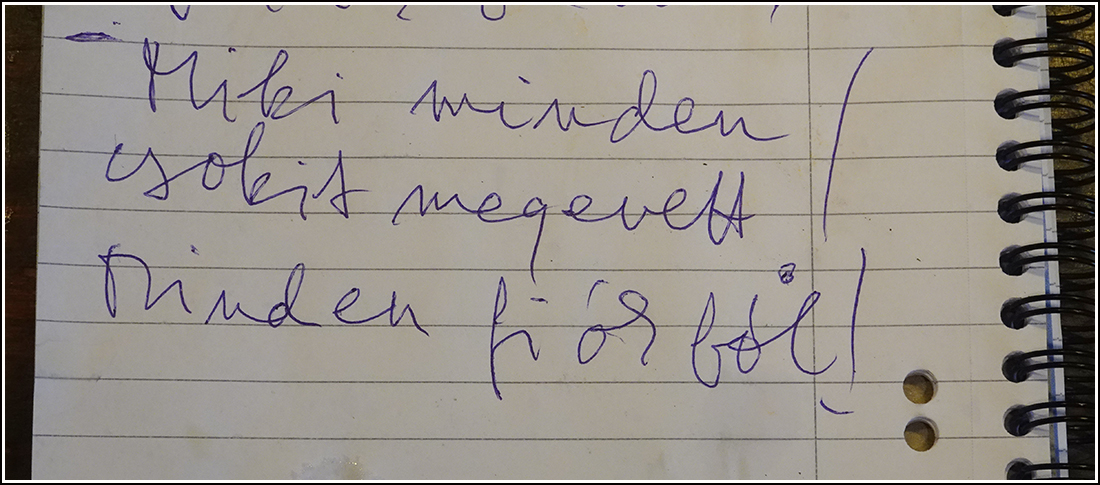 Miki minden
csokit megevett
Minden fiókból!